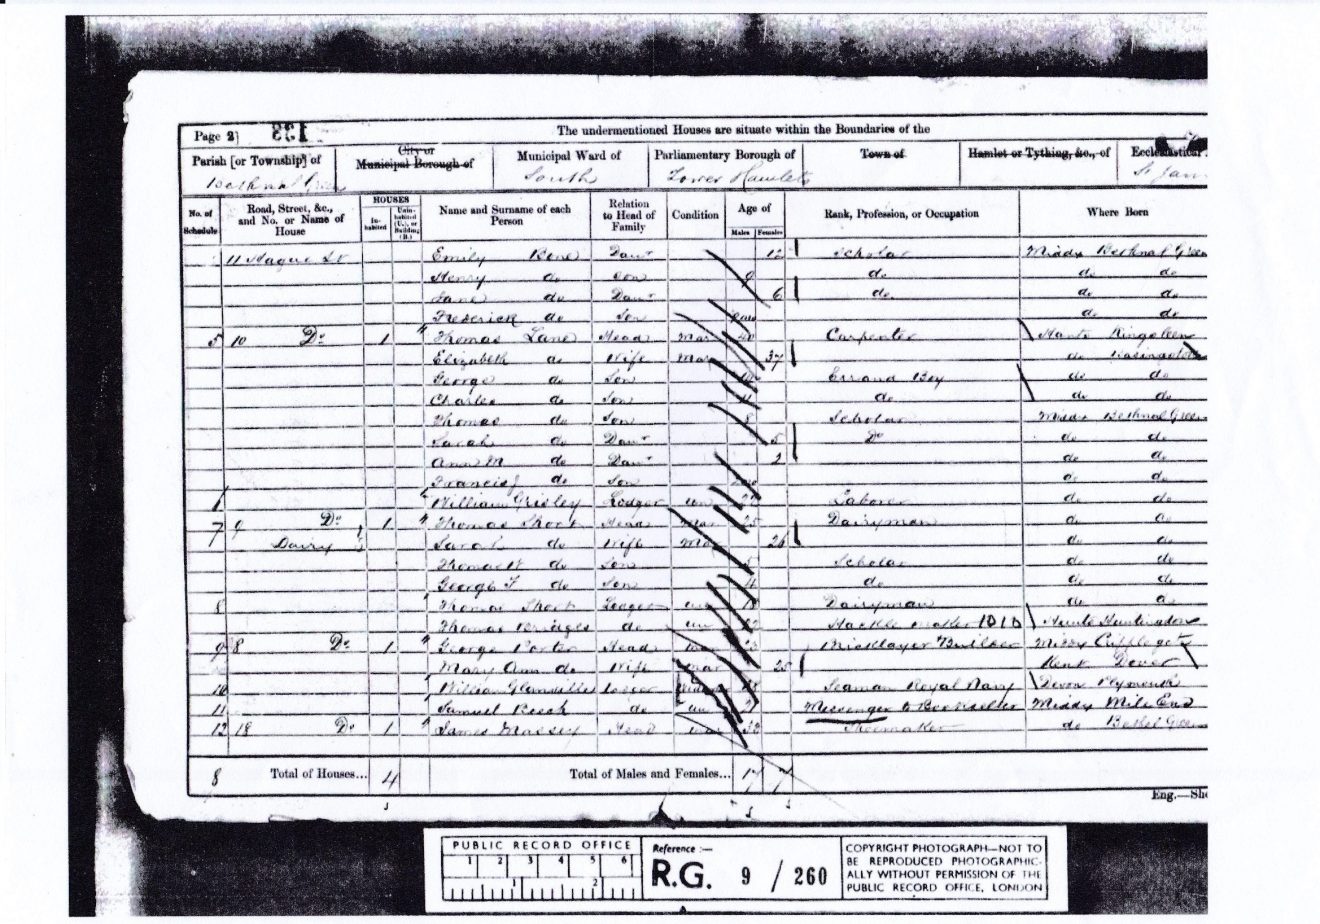 Page 2] 133
The undermentioned Houses are situate within the Boundaries of the
Parish [or Township] of
City or
Municipal Borough of
Municipal Ward of
Parliamentary Borough of
Town of
Hamlet or Tything, &c., of
Ecclesiastical
Bethnal Green
South
Tower Hamlets
St Jam
No. of Schedule
Road, Street, &c., and No. or Name of House
HOUSES
Inhabited
Uninhabited (U.), or Building (B.)
Name and Surname of each Person
Relation to Head of Family
Condition
Age of
Males Females
Rank, Profession, or Occupation
Where Born
11 Hague St Emily Daur 12 Scholar Middx Bethnal Green
Henry do Son 9 do do do
Jane do Daur 6 do do do
Frederick do Son do do
5 10 Do 1 Thomas Lane Head Mar 40 Carpenter Hants
Elizabeth do Wife Mar 37 do Basingstoke
George do Son Errand Boy do do
Charles do Son 11 do do do
Thomas do Son 8 Scholar Middx Bethnal Green
Sarah do Daur 5 Do do do
Ann M do Daur 2 do do
Francis J do Son do do
6 William Grisley Lodger un Laborer do do
7 9 Do 1 Thomas Short Head Mar 25 Dairyman do do
Dairy Sarah do Wife Mar 26 do do
Thomas do Son 5 Scholar do do
George T do Son 4 do do do
8 Thomas Short Lodger un 18 Dairyman do do
Thomas Bridges do un maker Hunts Huntingdon
9 8 Do 1 George Porter Head Mar Bricklayer Builder Middx
Mary Ann do Wife Mar 25 Kent Dover
10 William Glanville Lodger Seaman Royal Navy Devon Plymouth
11 Samuel do un 21 Messenger to Bookseller Middx Mile End
12 18 Do 1 James Massey Head Mar 30 Shoemaker do Bethnal Green
8 Total of Houses... 4 Total of Males and Females... 17 7
Eng.—She
PUBLIC RECORD OFFICE
1 2 3 4 5 6
1 2
Reference :—
R.G. 9 / 260
COPYRIGHT PHOTOGRAPH—NOT TO
BE REPRODUCED PHOTOGRAPHIC-
ALLY WITHOUT PERMISSION OF THE
PUBLIC RECORD OFFICE, LONDON